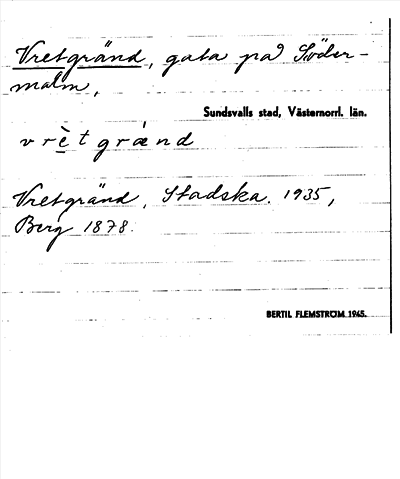 Vretgränd, gata på Söder-
malm,
Sundsvalls stad, Västernorrl. län.
v r è t g r ä́ n d
Vretgränd, Stadska. 1935,
Berg 1878.
BERTIL FLEMSTRÖM 1945.